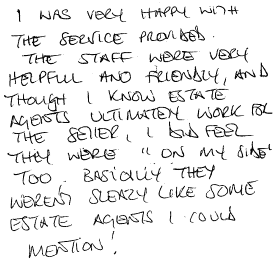 I WAS VERY HAPPY WITH
THE SERVICE PROVIDED.
THE STAFF WERE VERY
HELPFUL AND FRIENDLY, AND
THOUGH I KNOW ESTATE
AGENTS ULTIMATELY WORK FOR
THE SELLER, I DID FEEL
THEY WERE "ON MY SIDE"
TOO. BASICALLY THEY
WEREN'T SLEAZY LIKE SOME
ESTATE AGENTS I COULD
MENTION!